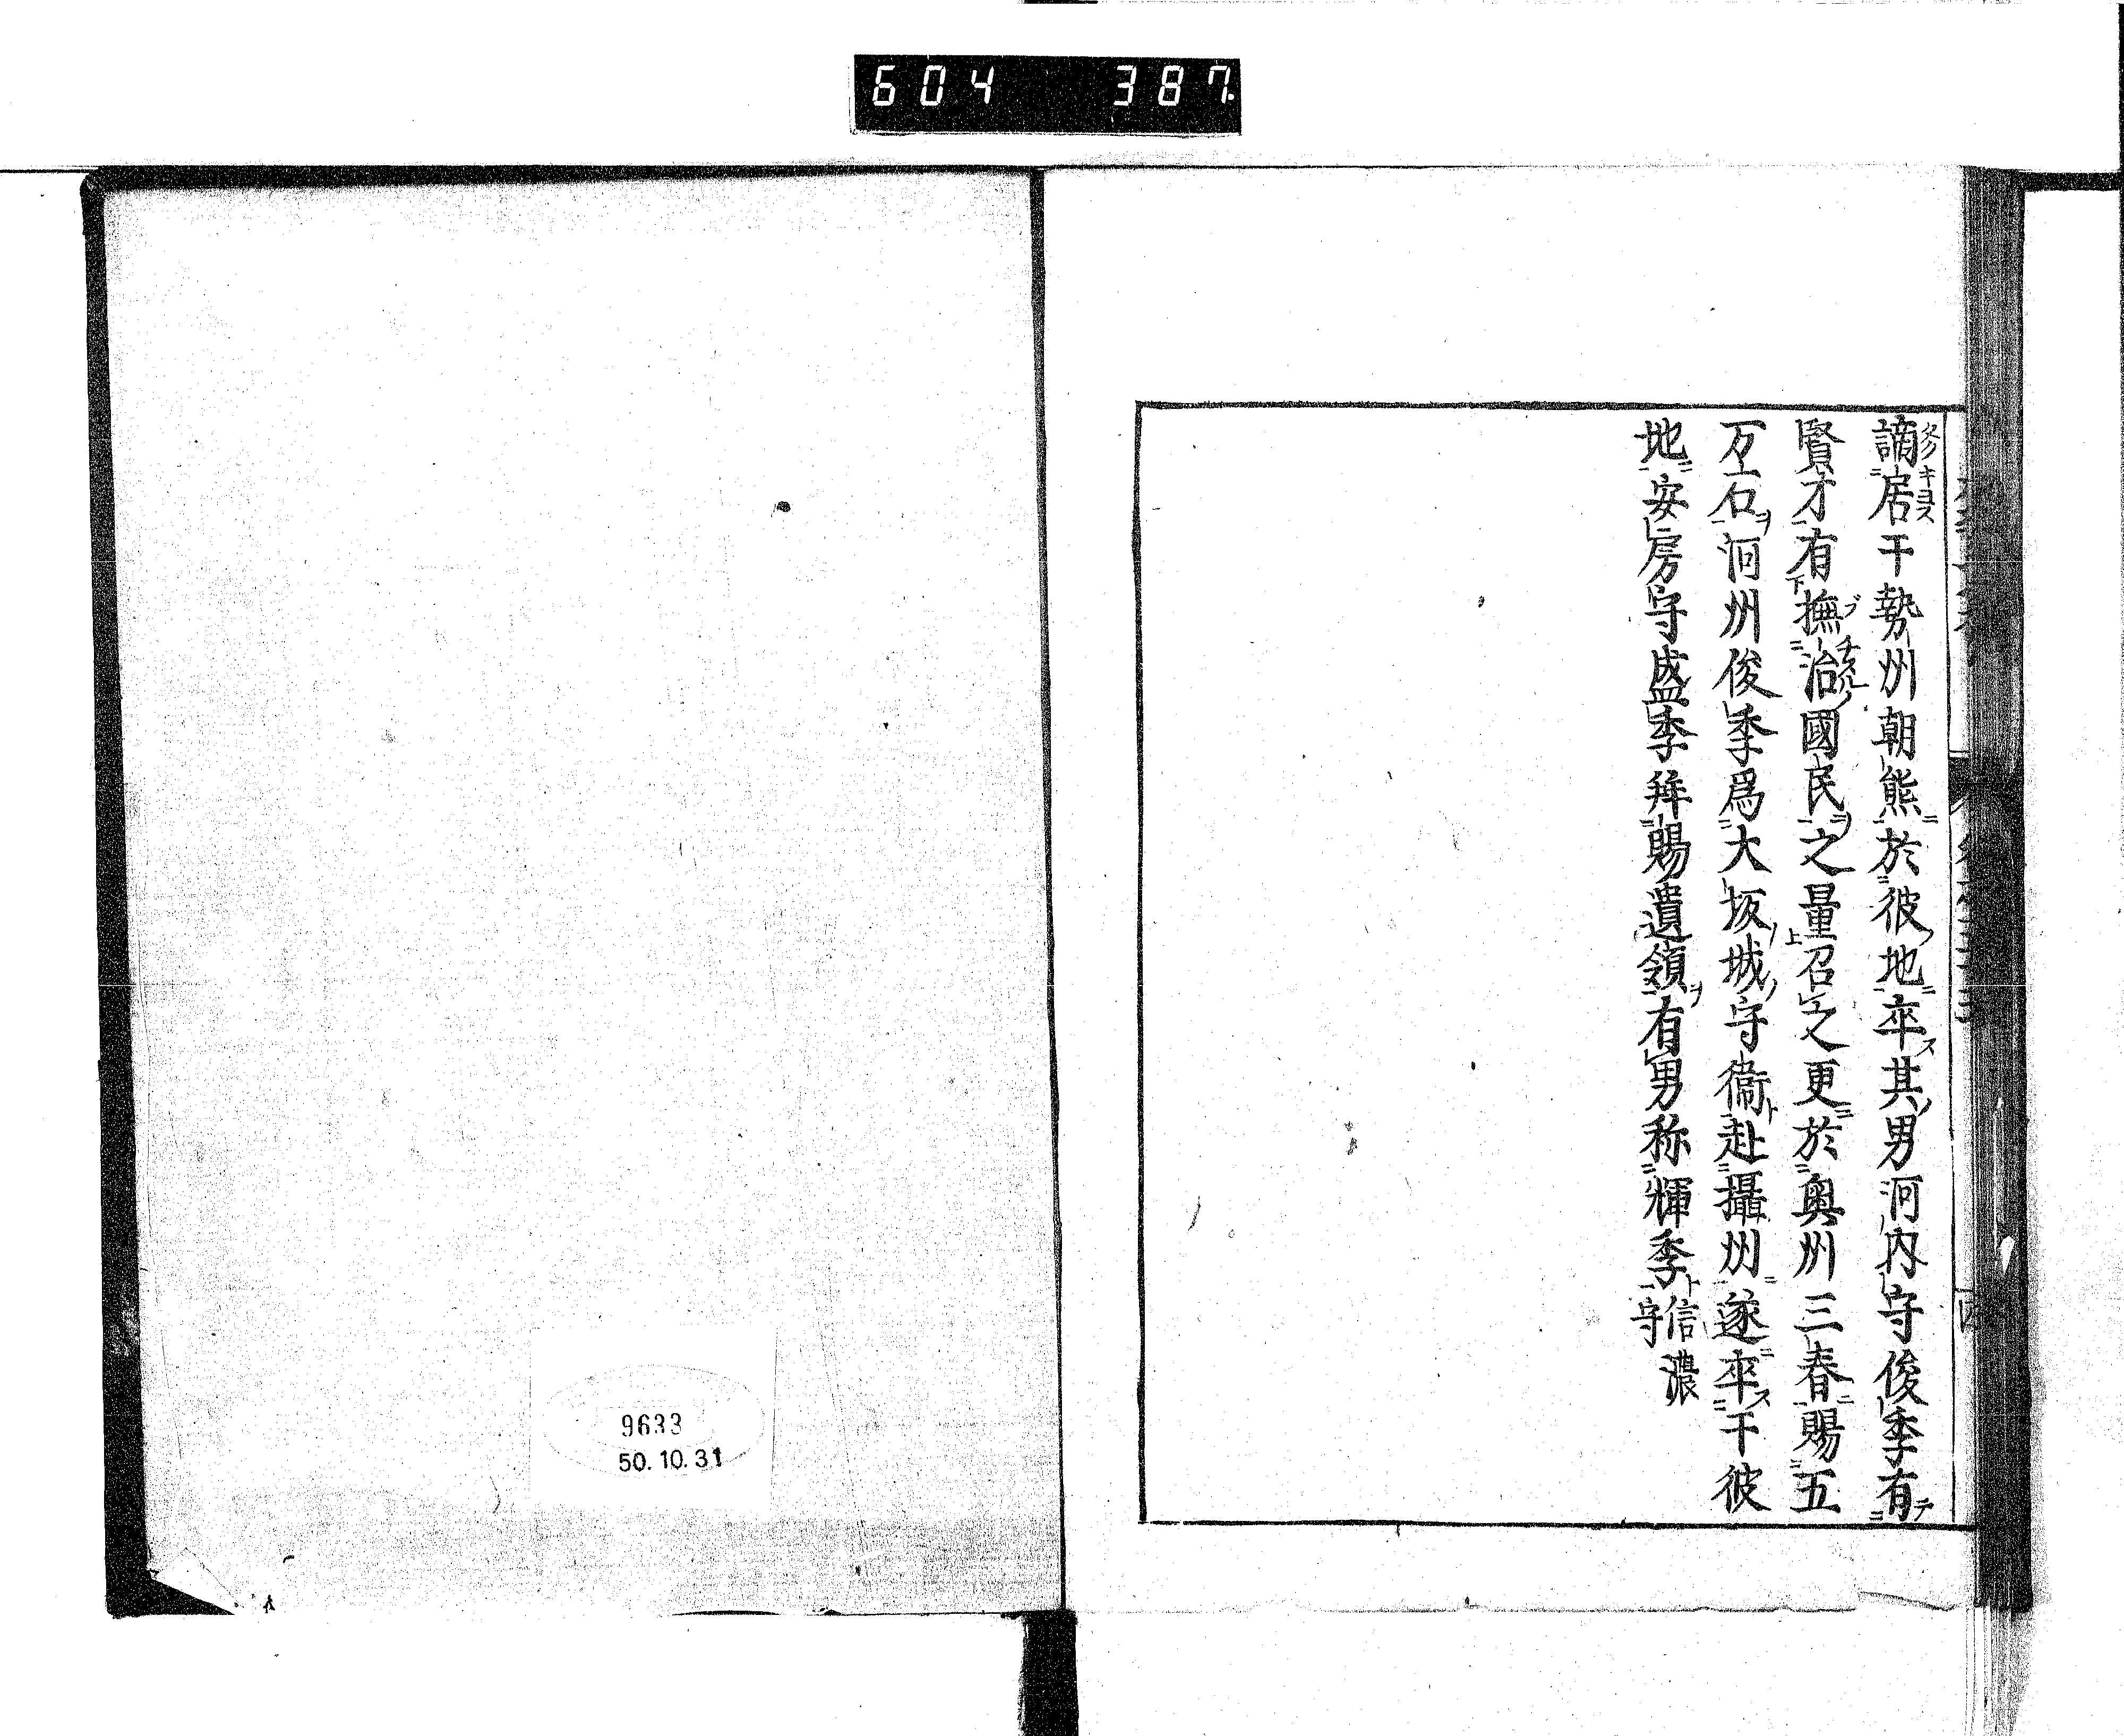 604 387
謫居干勢州朝熊於彼地卒其男河内守俊季有
賢才有撫治國民之量召之更於奥州三春賜五
万石河州俊季爲大坂城守衞赴攝州遂卒干彼
地安房守盛季拜賜遺領有男称輝季信濃守
9633
50.10.31